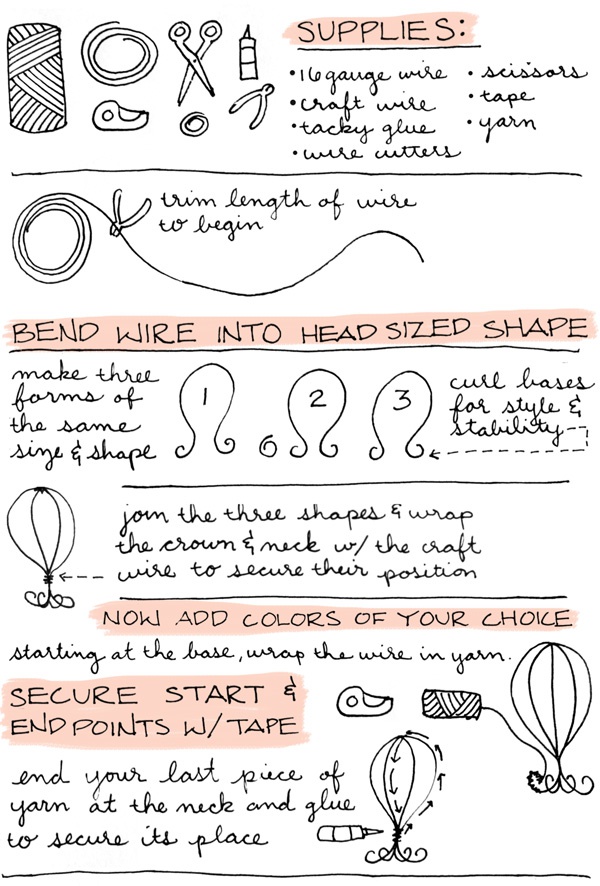 SUPPLIES:
• 16 gauge wire
• craft wire
• tacky glue
• wire cutters
• scissors
• tape
• yarn
trim length of wire
to begin
BEND WIRE INTO HEAD SIZED SHAPE
make three
forms of
the same
size & shape
1 2 3
curl bases
for style &
stability
join the three shapes & wrap
the crown & neck w/ the craft
wire to secure their position
NOW ADD COLORS OF YOUR CHOICE
starting at the base, wrap the wire in yarn.
SECURE START &
END POINTS W/ TAPE
end your last piece of
yarn at the neck and glue
to secure its place